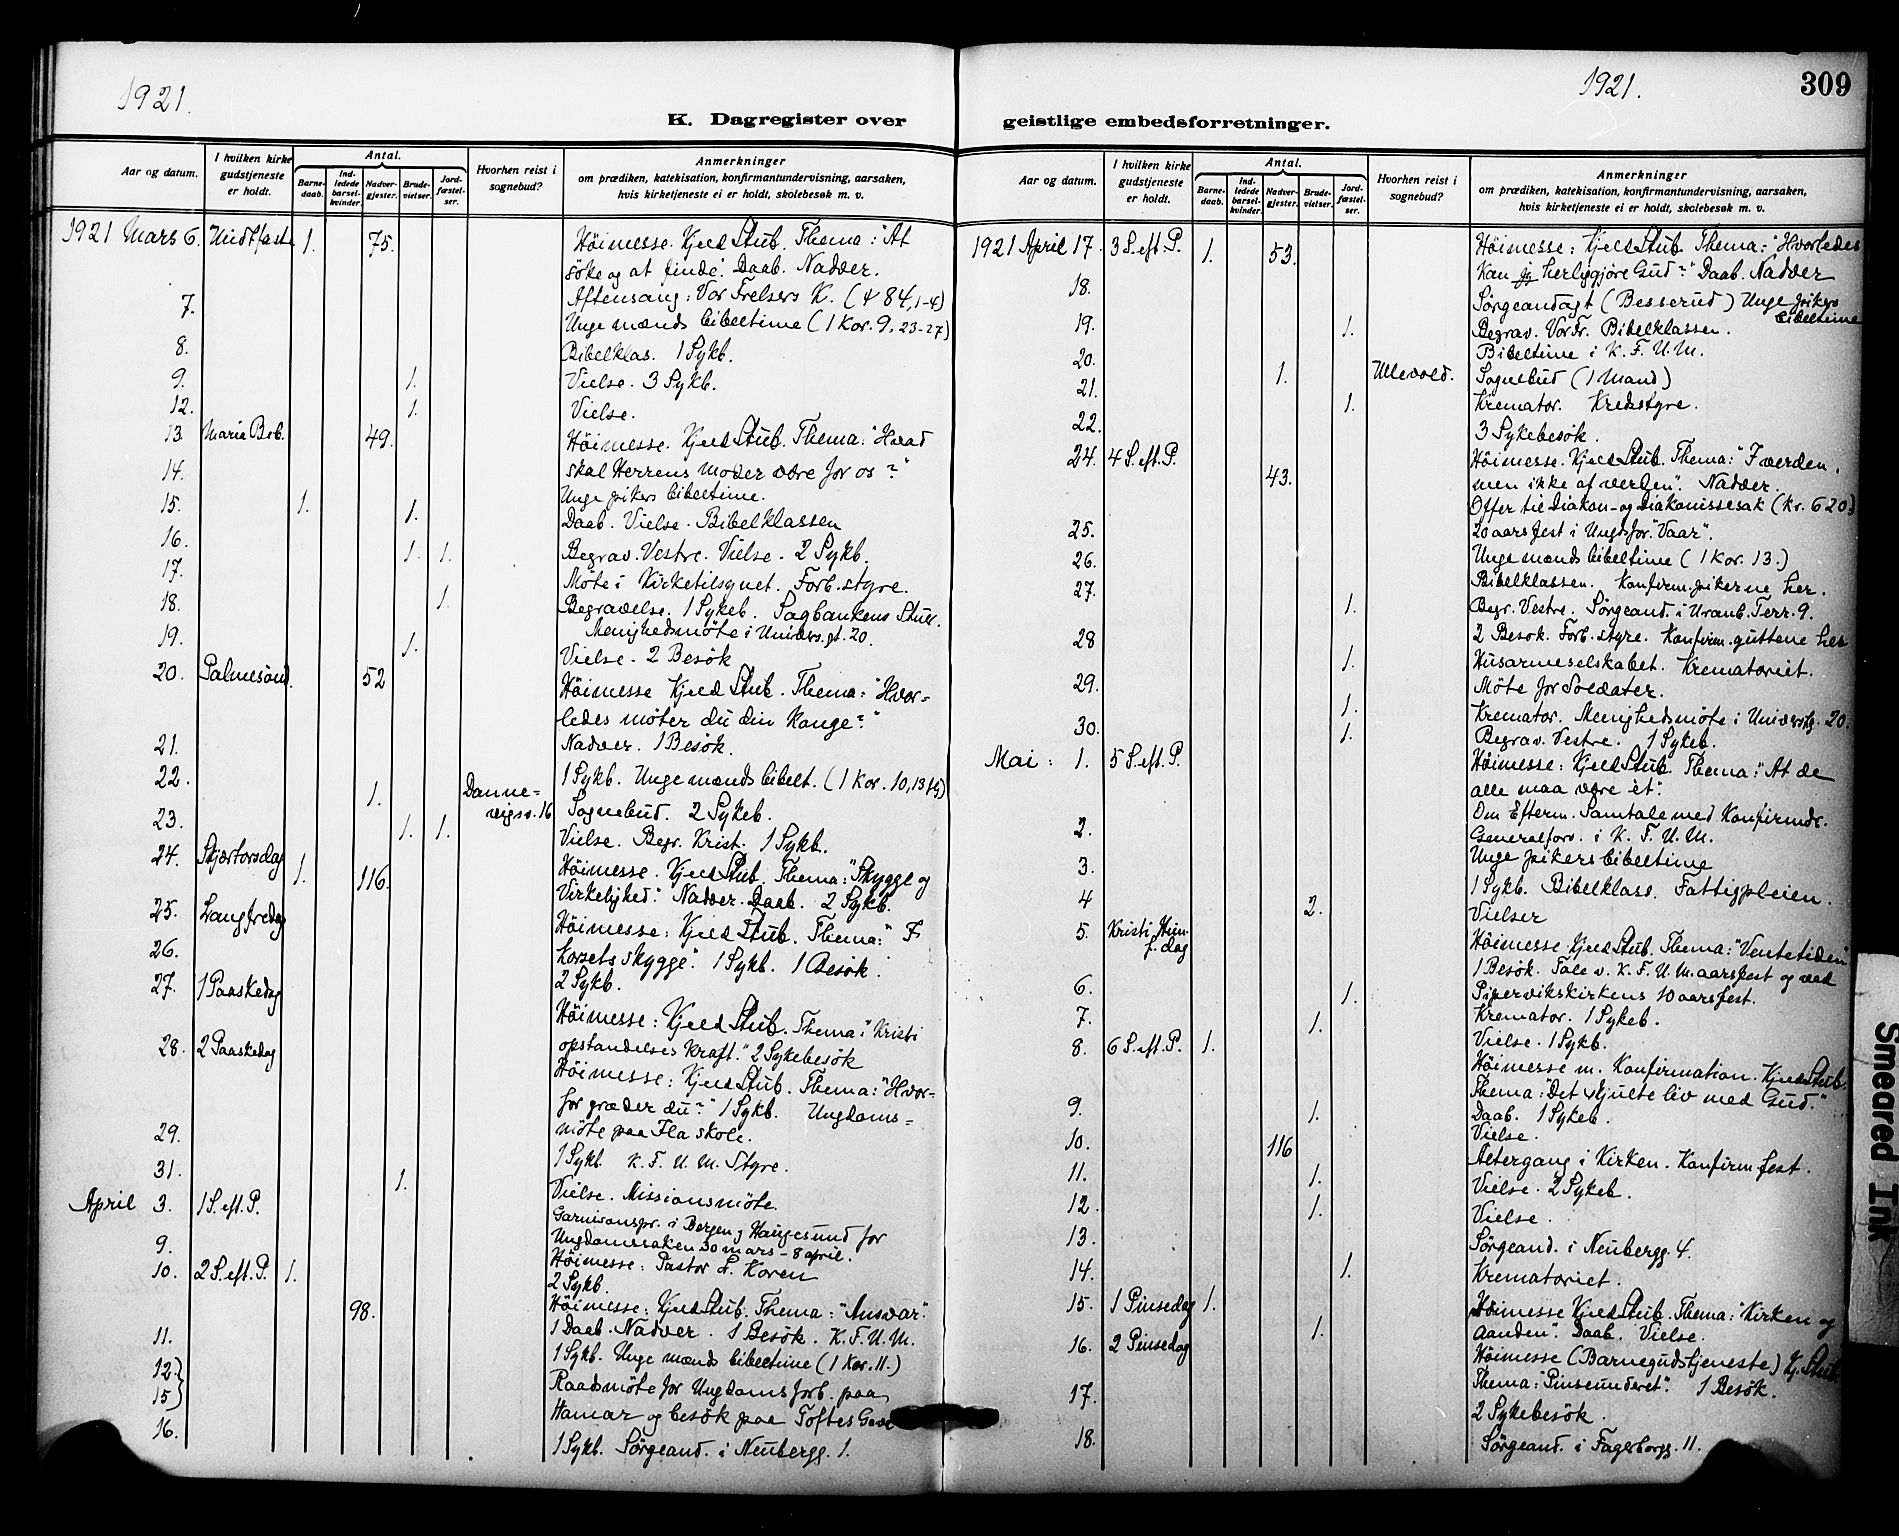 1921.
K. Dagregister over
Aar og datum.
I hvilken kirke gudstjeneste er holdt.
Antal.
Barne-daab.
Ind-ledede barsel-kvinder.
Nadver-gjester.
Brude-vielser.
Jord-fæstel-ser.
Hvorhen reist i sognebud?
Anmerkninger
om prædiken, katekisation, konfirmantundervisning, aarsaken,
hvis kirketjeneste ei er holdt, skolebesøk m. v.
1921 Mars 6. Midtfaste 1. 75. Höimesse. Kjeld Stub. Thema: "At
söke og at finde". Daab. Nadver.
Aftensang: Vor Frelsers K. (ψ 84, 1-4)
7. Unge mænds bibeltime (1 Kor. 9, 23-27)
8. Bibelklas. 1 Sykb.
9. 1. Vielse. 3 Sykb.
12. 1. Vielse.
13. Maria Beb. 49. Höimesse. Kjeld Stub. Thema: "Hvad
skal Herrens moder være for os?"
14. Unge pikers bibeltime.
15. 1. 1. Daab. Vielse. Bibelklassen
16. 1. 1. Begrav. Vestre. Vielse. 2 Sykb.
17. Möte i Kirketilsynet. Forb. styre.
18. 1. Begravelse. 1 Sykeb. Sagbankens Stuer.
Menighedsmöte i Univers.gt. 20.
19. 1. Vielse. 2 Besök
20. Palmesönd. 52 Höimesse Kjeld Stub. Thema: "Hvor-
ledes möter du din Konge?"
Nadver. 1 Besök.
21. 1 Sykb. Unge mænds bibelt. (1 Kor. 10, 1375)
22. 1. Danne-
vigsv. 16 Sognebud. 2 Sykeb.
23. 1. 1. Vielse. Begr. Krist. 1 Sykb.
24. Skjærtorsdag 1. 116. Höimesse. Kjeld Stub. Thema: "Skygge og
Virkelighed". Nadver. Daab. 2 Sykb.
25. Langfredag Höimesse: Kjeld Stub. Thema: "I
korsets skygge". 1 Sykb. 1 Besök.
26. 2 Sykb.
27. 1 Paaskedag Höimesse: Kjeld Stub. Thema: "Kristi
opstandelses Kraft." 2 Sykebesök
28. 2 Paaskedag Höimesse: Kjeld Stub. Thema: "Hvor-
for græder du?" 1 Sykb. Ungdoms-
möte paa Ila skole.
29. 1 Sykb. K. F. U. M. Styre.
31. 1. Vielse. Missionsmöte.
April 3. 1 S. eft. P. Garnisonspr. i Bergen og Haugesund for
Ungdomssaken 30 mars - 8 april.
Höimesse: Pastor L. Koren
9. 2 Sykb.
10. 2 S. eft. P. 1. 98. Höimesse: Kjeld Stub. Thema: "Ansvar".
1 Daab. Nadver. 1 Besök. K. F. U. M.
11. 1 Sykb. Unge mænds bibeltime (1 Kor. 11.)
12.} Raadsmöte for Ungdomsforb. paa
15} Hamar og besök paa Toftes Gave
16. 1 Sykb. Sörgeand. i Neubergg. 1.
1921.
309
geistlige embedsforretninger.
Aar og datum.
I hvilken kirke gudstjeneste er holdt.
Antal.
Barne-daab.
Ind-ledede barsel-kvinder.
Nadver-gjester.
Brude-vielser.
Jord-fæstel-ser.
Hvorhen reist i sognebud?
Anmerkninger
om prædiken, katekisation, konfirmantundervisning, aarsaken,
hvis kirketjeneste ei er holdt, skolebesøk m. v.
1921 April 17. 3 S. eft. P. 1. 53. Höimesse: Kjeld Stub. Thema: "Hvorledes
kan jeg herliggjöre Gud?" Daab. Nadver
18. Sörgeandagt (Besserud) Unge pikers
bibeltime
19. 1. Begrav. Vor Fr. Bibelklassen.
20. Bibeltime i K. F. U. M.
21. 1. Ullevold. Sognebud (1 Mand)
22. 1. Kremator. Kredsstyre.
3 Sykebesök.
24. 4 S. eft. P. 43. Höimesse. Kjeld Stub. Thema: "I verden,
men ikke af verden". Nadver.
Offer til Diakon- og Diakonissesak (kr. 620)
25. 20 aarsfest i Ungdsfor. "Vaar".
26. Unge mænds bibeltime (1 Kor. 13.)
27. Bibelklassen. Konfirm. pikerne her.
1. Begr. Vestre. Sörgeand. i Uranb. Terr. 9.
28 2 Besök. Forb. styre. Konfirm. guttene her
1. Husarmeselskabet. Krematoriet.
29. Möte for Soldater.
1. Kremator. Menighedsmöte i Universtg. 20.
30. 1. Begrav. Vestre. 1 Sykeb.
Mai: 1. 5 S. eft. P. Höimesse: Kjeld Stub. Thema: "At de
alle maa være ét".
Om Efterm. Samtale med Konfirmdr.
2. Generalforv. i K. F. U. M.
Unge pikers bibeltime
3. 1 Sykb. Bibelklass. Fattigpleien.
4 2. Vielser
5. Kristi Him-
f. dag Höimesse Kjeld Stub. Thema: "Ventetiden"
1 Besök. Tale v. K. F. U. M. aarsfest og ved
Pipervikskirkens 10 aarsfest.
6. 1. Kremator. 1 Sykeb.
7. 1. Vielse. 1 Sykb.
8. 6 S. eft. P. 1. Höimesse m. Konfirmation. Kjeld Stub.
Thema: "Det skjulte liv med Gud."
Daab. 1 Sykeb.
9. 1. Vielse.
10. 116 Altergang i Kirken. Konfirm fest.
11. 1. Vielse. 2 Sykeb.
12. 1. Vielse.
13. Sörgeand. i Neubergg. 4.
14. 1. Krematoriet.
15. 1 Pinsedag 1. 1. Höimesse Kjeld Stub. Thema: "Kirken og
Aanden". Daab. Vielse.
16. 2 Pinsedag Höimesse (Barnegudstjeneste) Kj. Stub.
Thema: "Pinseunderet". 1 Besök.
17. 2 Sykebesök.
18. Sörgeand. i Fagerborgg. 11.
Smeared Ink